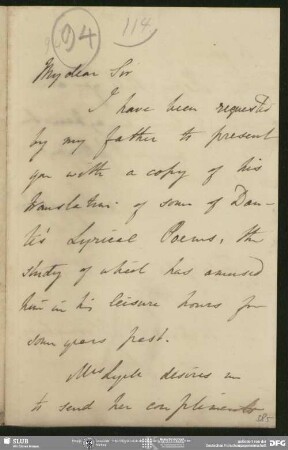 94
114
My dear Sir
I have been requested
by my father to present
you with a copy of his
translation of some of Dan-
te's Lyrical Poems, the
study of which has amused
him in his leisure hours for
some years past.
Mrs Lyell desires me
to send her compliments
SLUB
DFG